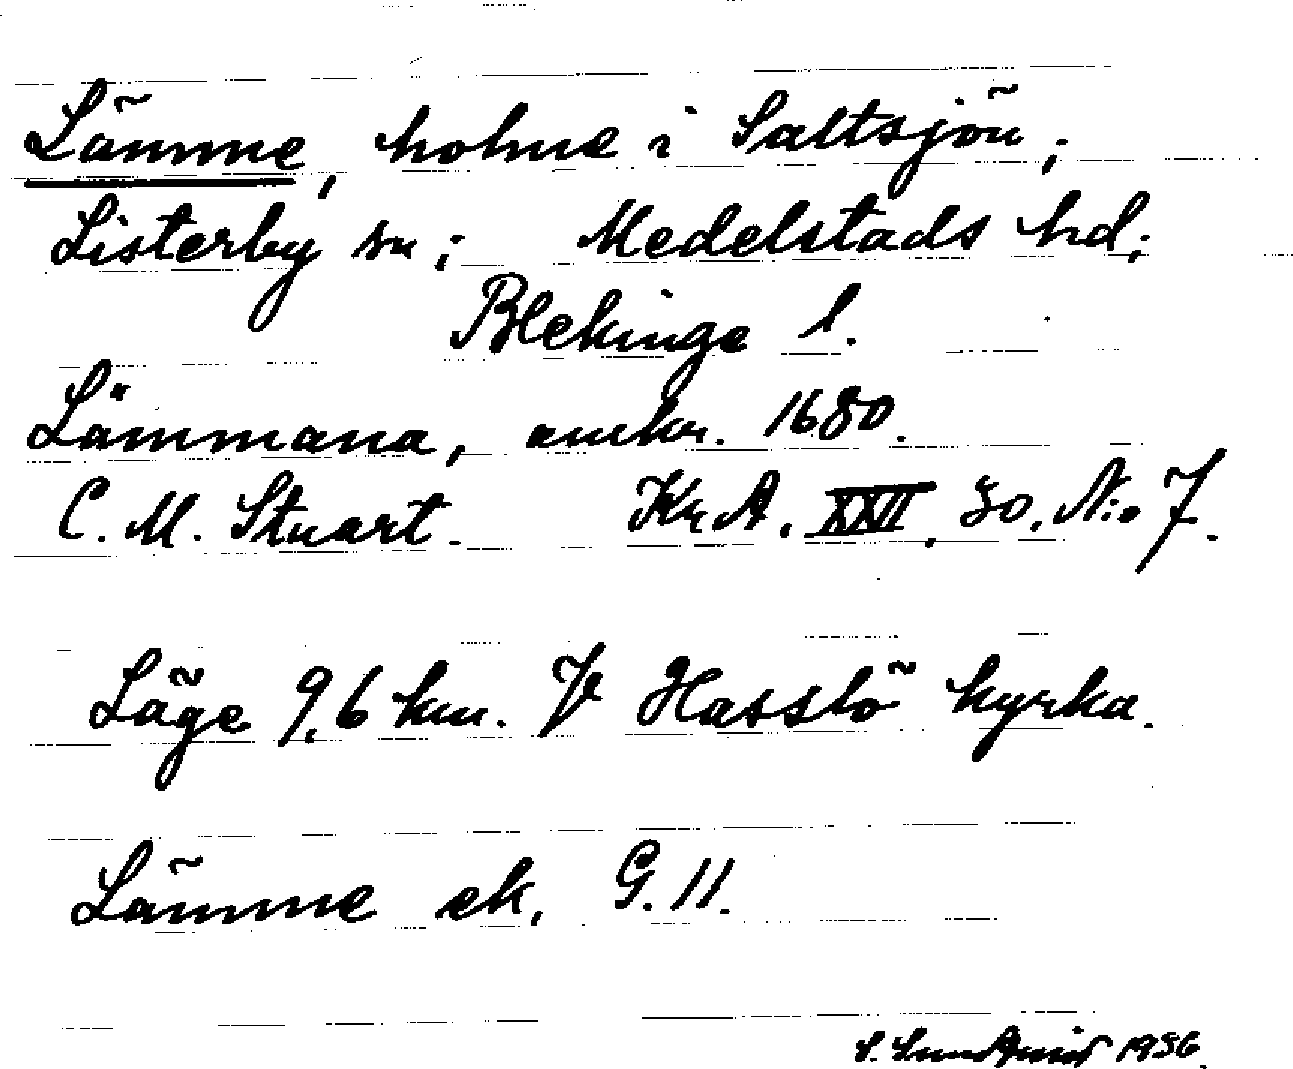 Lämme, holme i Saltsjön;
Listerby sn; Medelstads hd;
Blekinge l.
Lämmana, omkr. 1680.
C. M. Stuart. Kr.A. XXII. 30. N:o 7.
Läge 9,6 km. V Hasslö kyrka.
Lämme ek. G. 11.
1936